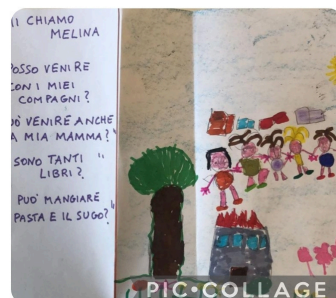 MI CHIAMO
MELINA
POSSO VENIRE
CON I MIEI
COMPAGNI?
PUÒ VENIRE ANCHE
LA MIA MAMMA?"
SONO TANTI "
LIBRI?
PUÒ MANGIARE
PASTA E IL SUGO?"
PIC•COLLAGE